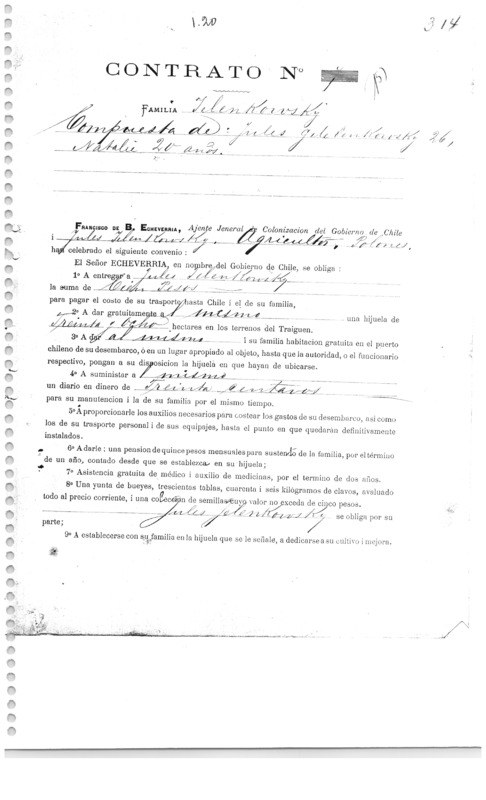 1.20
314
CONTRATO Nº
FAMILIA Jelenkowsky
Compuesta de: Jules Jelenkowsky 26,
Natalie 20 años.
FRANCISCO DE B. ECHEVERRIA, Ajente Jeneral de Colonizacion del Gobierno de Chile
i Jules Jelenkowsky, Agricultor, Polones.
han celebrado el siguiente convenio:
El Señor ECHEVERRIA, en nombre del Gobierno de Chile, se obliga:
1º A entregar a Jules Jelenkowsky
la suma de Cien Pesos
para pagar el costo de su trasporte hasta Chile i el de su familia,
2º A dar gratuitamente al mismo una hijuela de
Treinta i Ocho hectares en los terrenos del Traiguen.
3º A dar al mismo i su familia habitacion gratuita en el puerto
chileno de su desembarco, ó en un lugar apropiado al objeto, hasta que la autoridad, o el funcionario
respectivo, pongan a su disposicion la hijuela en que hayan de ubicarse.
4º A suministar a l mismo
un diario en dinero de Treinta centavos
para su manutencion i la de su familia por el mismo tiempo.
5º A proporcionarle los auxilios necesarios para costear los gastos de su desembarco, así como
los de su trasporte personal i de sus equipajes, hasta el punto en que quedarán definitivamente
instalados.
6º A darle: una pension de quince pesos mensuales para sustento de la familia, por el término
de un año, contado desde que se establezca en su hijuela;
7º Asistencia gratuita de médico i auxilio de medicinas, por el termino de dos años.
8º Una yunta de bueyes, trescientas tablas, cuarenta i seis kilógramos de clavos, avaluado
todo al precio corriente, i una coleccion de semillas cuyo valor no exceda de cinco pesos.
Jules Jelenkowsky se obliga por su
parte;
9º A establecerse con su familia en la hijuela que se le señale, a dedicarse a su cultivo i mejora.